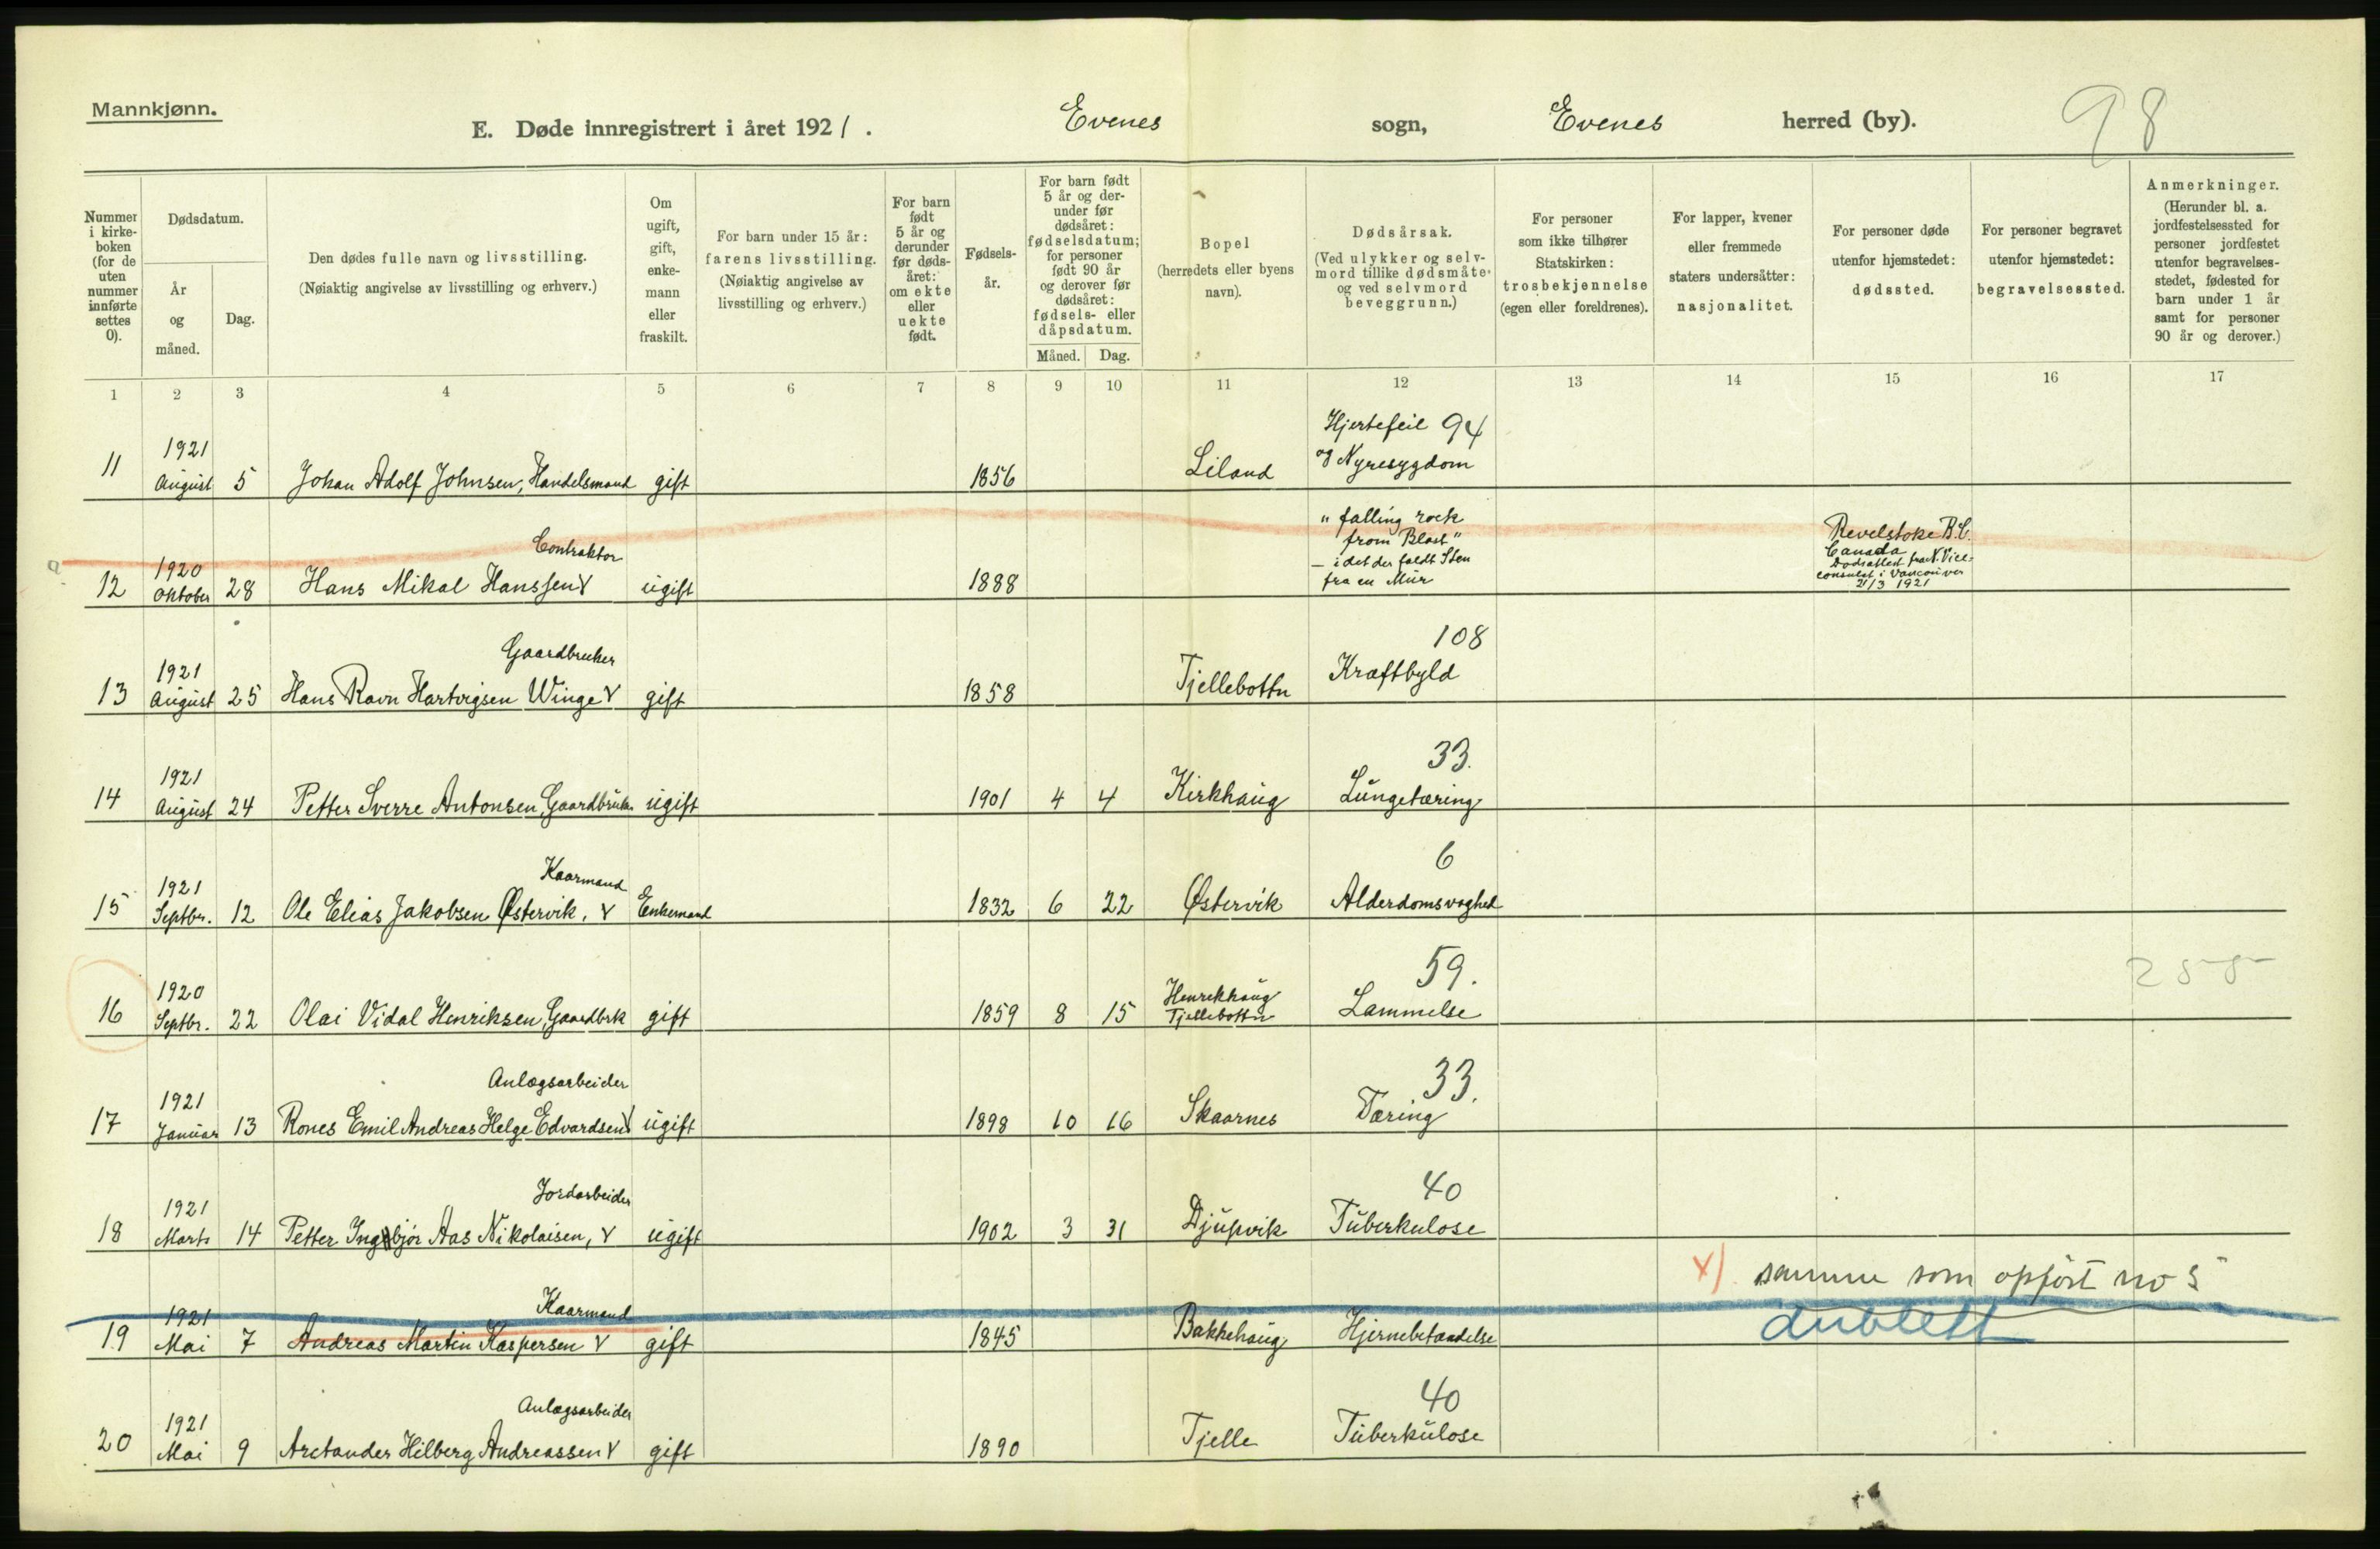 Mannkjønn.
E. Døde innregistrert i året 1921. Evenes sogn, Evenes herred (by). 98
Nummer i kirke-boken (for de uten nummer innførte settes 0).
Dødsdatum.
År og måned.
Dag.
Den dødes fulle navn og livsstilling.
(Nøiaktig angivelse av livsstilling og erhverv.)
Om ugift, gift, enke-mann eller fraskilt.
For barn under 15 år: farens livsstilling. (Nøiaktig angivelse av livsstilling og erhverv.)
For barn født 5 år og derunder før døds-året: om ekte eller uekte født.
Fødsels-år.
For barn født 5 år og der-under før dødsåret: fødselsdatum; for personer født 90 år og derover før dødsåret: fødsels- eller dåpsdatum.
Måned. Dag.
Bopel (herredets eller byens navn).
Dødsårsak. (Ved ulykker og selv-mord tillike dødsmåte og ved selvmord beveggrunn.)
For personer som ikke tilhører Statskirken: trosbekjennelse (egen eller foreldrenes).
For lapper, kvener eller fremmede staters undersåtter: nasjonalitet.
For personer døde utenfor hjemstedet: dødssted.
For personer begravet utenfor hjemstedet: begravelsessted.
Anmerkninger. (Herunder bl. a. jordfestelsessted for personer jordfestet utenfor begravelses-stedet, fødested for barn under 1 år samt for personer 90 år og derover.)
1 2 3 4 5 6 7 8 9 10 11 12 13 14 15 16 17
11 1921 August 5 Johan Adolf Johnsen, Handelsmand gift 1856 Liland Hjertefeil og Nyresygdom 94
a
12 1920 Oktober 28 Hans Mikal Hanssen v Contraktor ugift 1888 "falling rock from Blast" – i det der faldt Sten fra en Mur Revelstoke B.C. Canada Dødsattest fra N. Vice-consulat i Vancouver 21/3 1921
13 1921 August 25 Hans Ravn Hartvigsen Winge v Gaardbruker gift 1858 Tjellebotn Kræftbyld 108
14 1921 August 24 Petter Sverre Antonsen, Gaardbruker ugift 1901 4 4 Kirkhaug Lungetæring 33.
15 1921 Septbr. 12 Ole Elias Jakobsen Østervik, v Kaarmand Enkemand 1832 6 22 Østervik Alderdomsvaghed 6
16 1920 Septbr. 22 Olai Vidal Henriksen, Gaardbrk gift 1859 8 15 Henrikhaug Tjellebotn Lammelse 59.
17 1921 Januar 13 Rones Emil Andreas Helge Edvardsen v Anlægsarbeider ugift 1898 10 16 Skaarnes Tæring 33.
18 1921 Marts 14 Petter Ingebjør Aas Nikolaisen, v Jordarbeider ugift 1902 3 31 Djupvik Tuberkulose 40
x) samme som opført no 5
19 1921 Mai 7 Andreas Martin Kaspersen v Kaarmand gift 1845 Bakkehaug Hjernebetændelse dublett
20 1921 Mai 9 Arctander Hilberg Andreassen v Anlægsarbeider gift 1890 Tjelle Tuberkulose 40